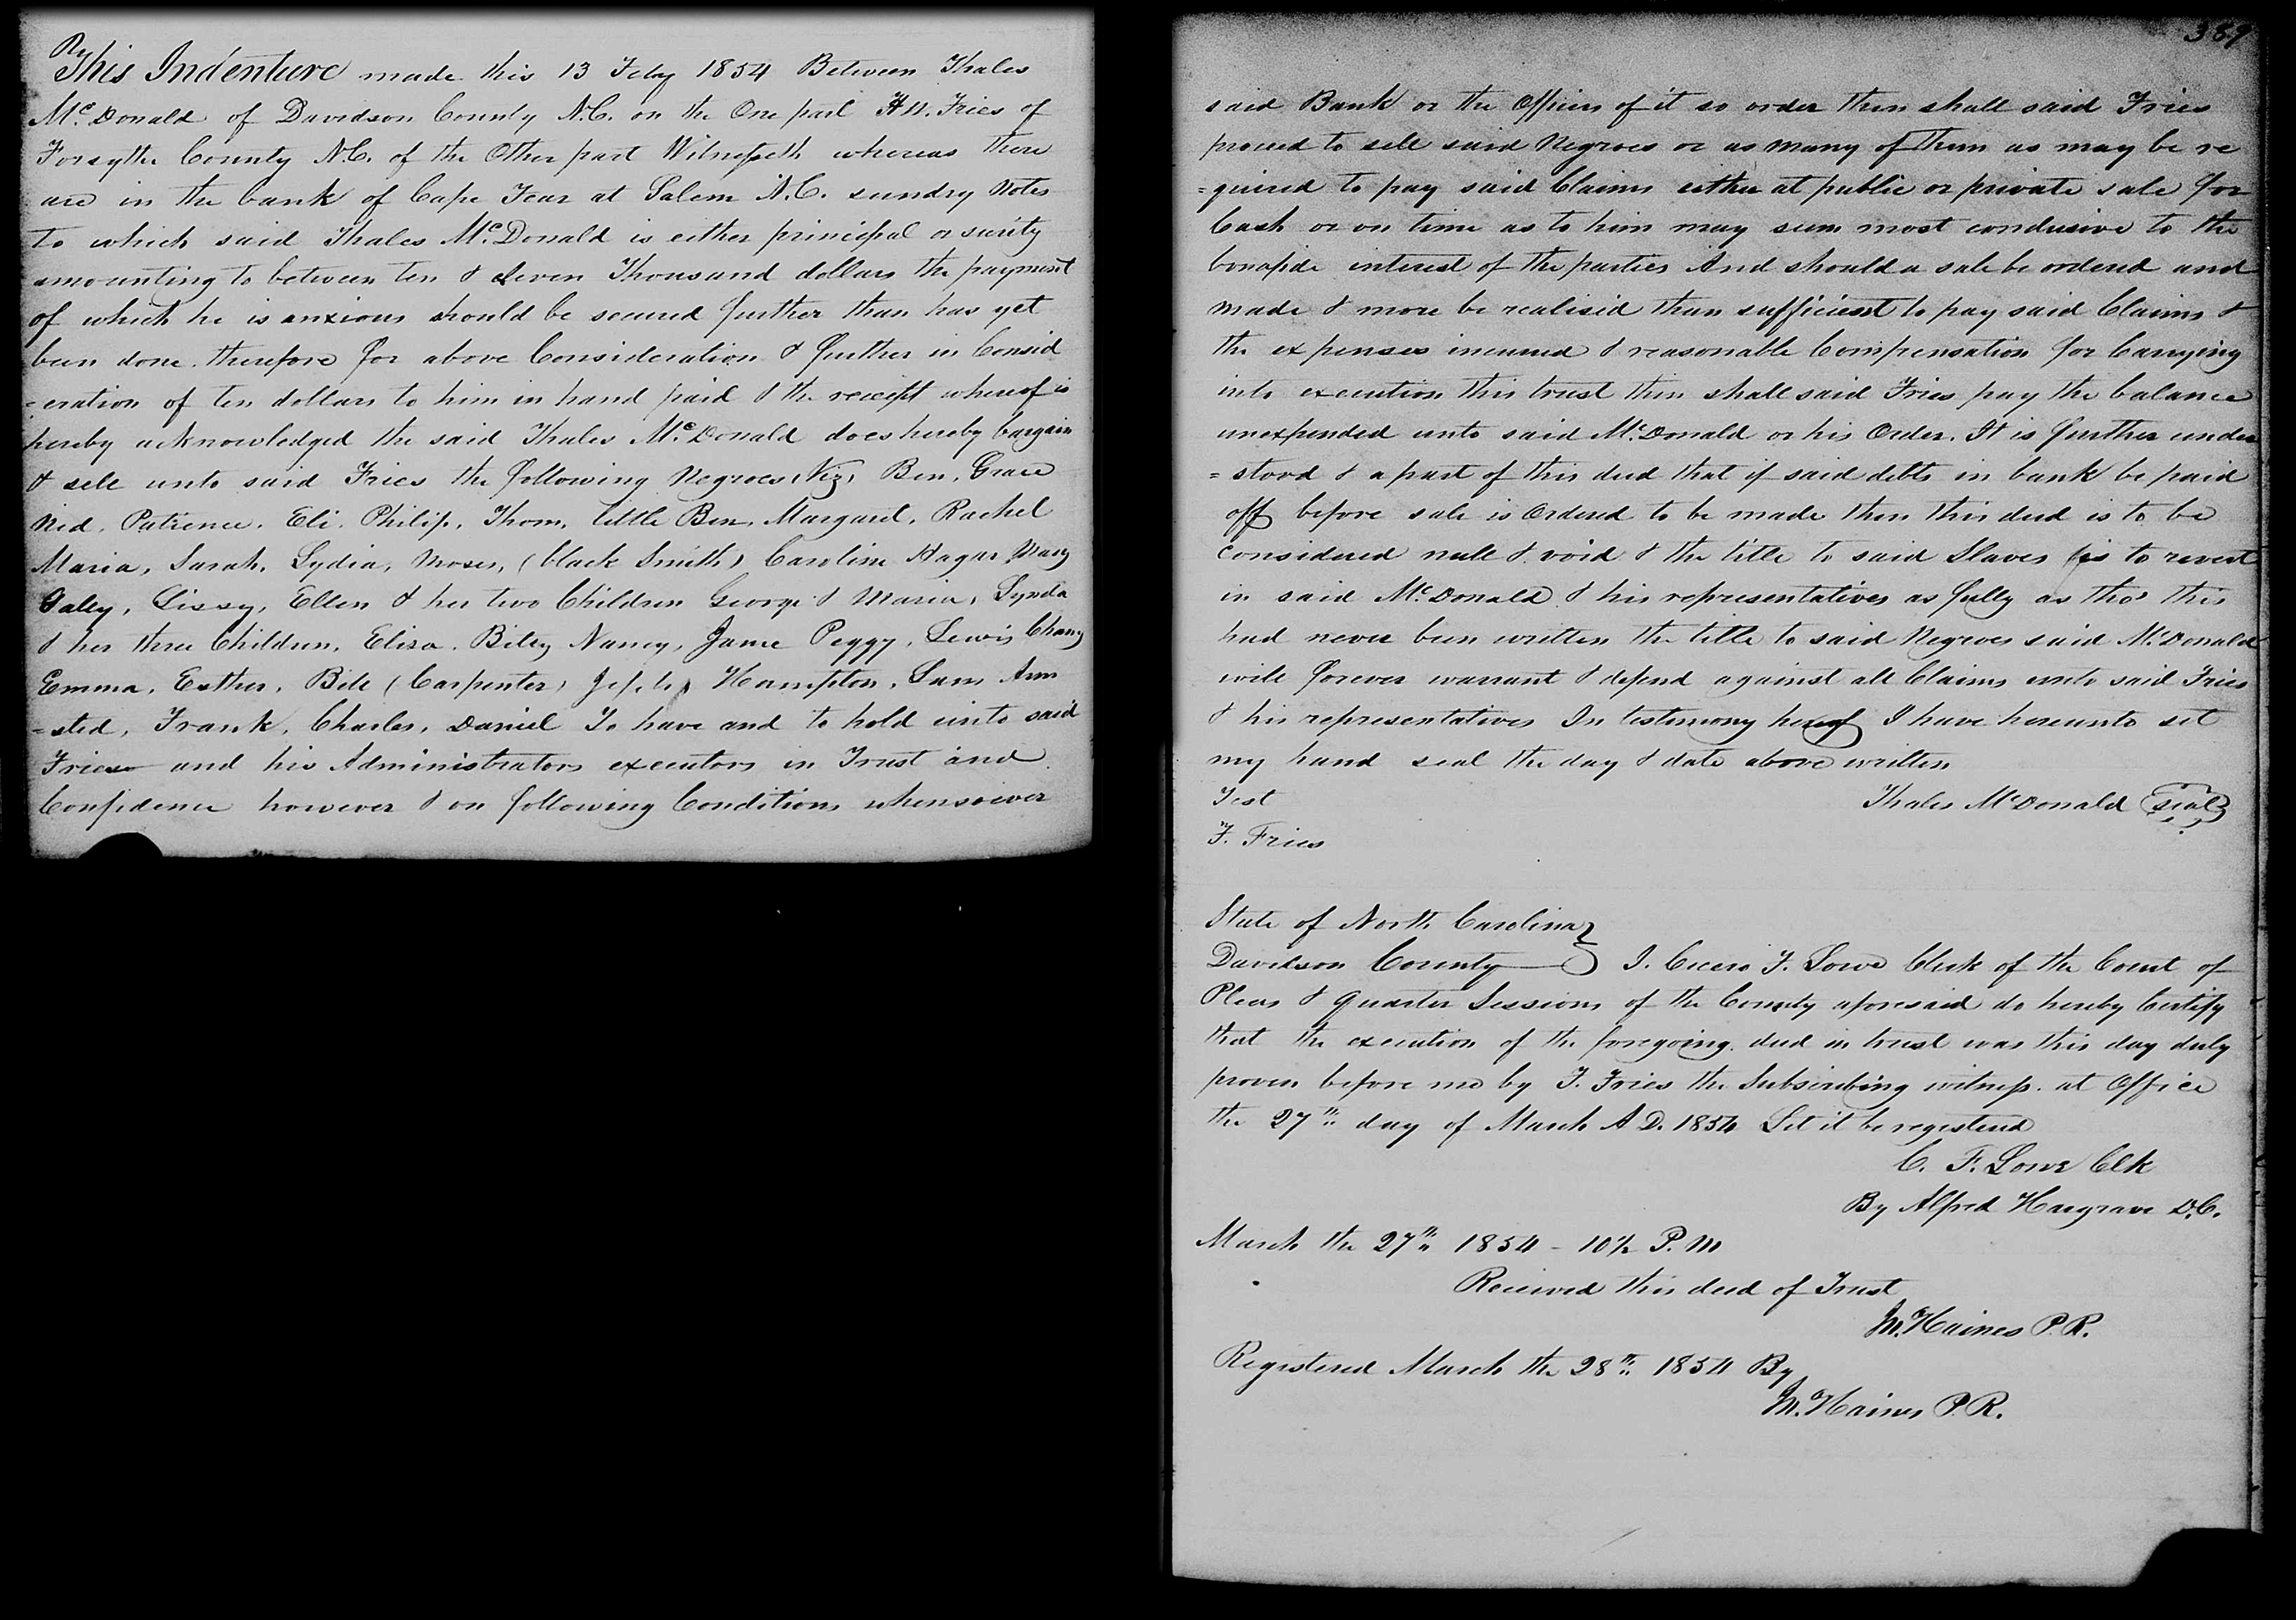 Ry
This Indenture made this 13 Feby 1854 Between Thales
McDonald of Davidson County N.C. on the One part H W. Fries of
Forsythe County N.C. of the Other part Witnesseth whereas there
are in the bank of Cape Fear at Salem N.C. sundry Notes
to which said Thales McDonald is either principal or surity
amounting to between ten & eleven Thousand dollars the payment
of which he is anxious should be secured further than has yet
been done. therefore for above Consideration & further in Consid
=eration of ten dollars to him in hand paid & the receipt whereof is
hereby acknowledged the said Thales McDonald does hereby bargain
& sell unto said Fries the following Negroes, Viz, Ben, Grace
Ned, Patience, Eli, Philip, Thom, little Ben, Margaret, Rachel
Maria, Sarah, Lydia, Moses, (black Smith) Caroline Hagar Mary
Lissy, Ellen & her two Children George & Maria, Lynda
& her three Children, Eliza, Biley Nancy, Jane Peggy, Lewis Chany
Emma, Esther, Bill (Carpenter) Hampton, Sam Arm
=sted, Frank, Charles, Daniel To have and to hold unto said
Fries and his Administrators executors in Trust and
Confidence however & on following Conditions whensoever
389
said Bank or the Officers of it so order then shall said Fries
proceed to sell said Negroes or as many of them as may be re
=quired to pay said Claims either at public or private sale for
Cash or on time as to him may seem most conducive to the
bonafide interest of the parties And should a sale be ordered and
made & more be realised than sufficient to pay said Claims &
the expenses incurred & reasonable Compensation for Carrying
into execution this trust then shall said Fries pay the balance
unexpended unto said McDonald or his Order. It is further under
=stood & a part of this deed that if said debts in bank be paid
off before sale is Ordered to be made then this deed is to be
Considered null & void & the title to said Slaves is to revert
in said McDonald & his representatives as fully as tho' this
had never been written the title to said Negroes said McDonald
will forever warrant & defend against all Claims unto said Fries
& his representatives In testimony hereof I have hereunto set
my hand seal the day & date above written
Test Thales McDonald seal
F. Fries
State of North Carolina
Davidson County I. Cicero F. Lowe Clerk of the Court of
Pleas & Quarter Sessions of the County aforesaid do hereby Certify
that the execution of the foregoing deed in trust was this day duly
proven before me by F. Fries the Subscribing witness. at Office
the 27th day of March A D. 1854 Let it be registered
C. F. Lowe Clk
By Alfred Hargrave D.C.
March the 27th 1854 - 10½ P. M
Received this deed of Trust
M. Haines P. R.
Registered March the 28th 1854 By
M. Haines P. R.